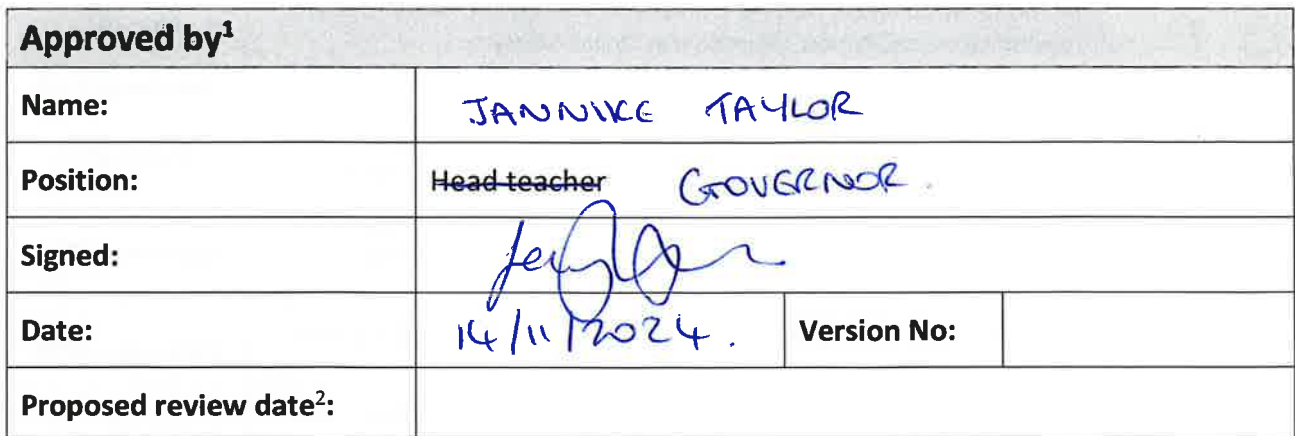 Approved by¹
Name: JANNIKE TAYLOR
Position: Head teacher GOVERNOR.
Signed:
Date: 14/11/2024. Version No:
Proposed review date²: